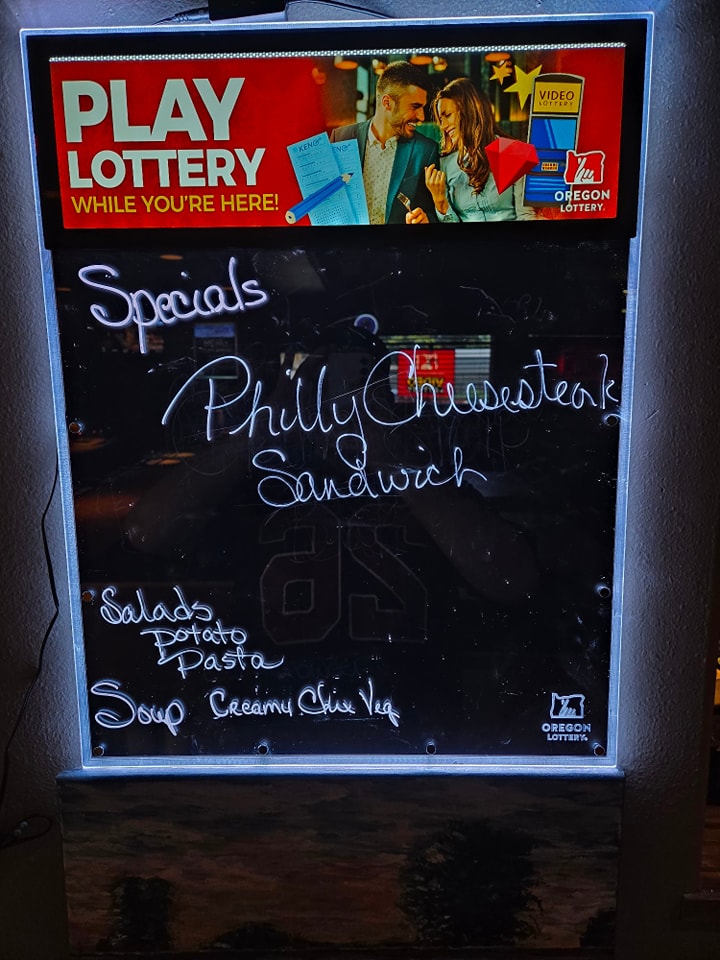 PLAY
LOTTERY
WHILE YOU'RE HERE!
KENO
VIDEO
LOTTERY
OREGON
LOTTERY.
Specials
Philly Cheesesteak
Sandwich
Salads
Potato
Pasta
Soup Creamy Chix Veg
OREGON
LOTTERY.